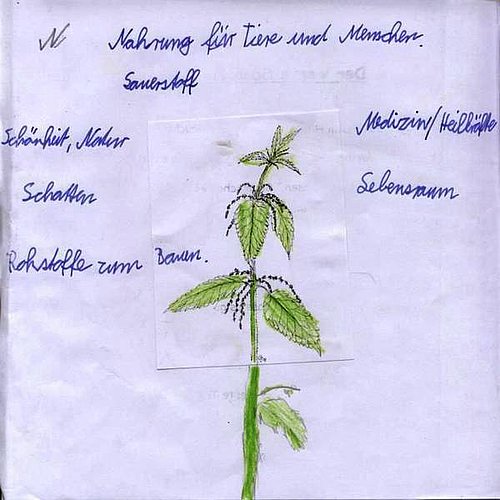 N
Nahrung für Tiere und Menschen.
Sauerstoff
Medizin/Heilkräfte
Schönheit, Natur
Schatten
Lebensraum
Rohstoffe zum Bauen.